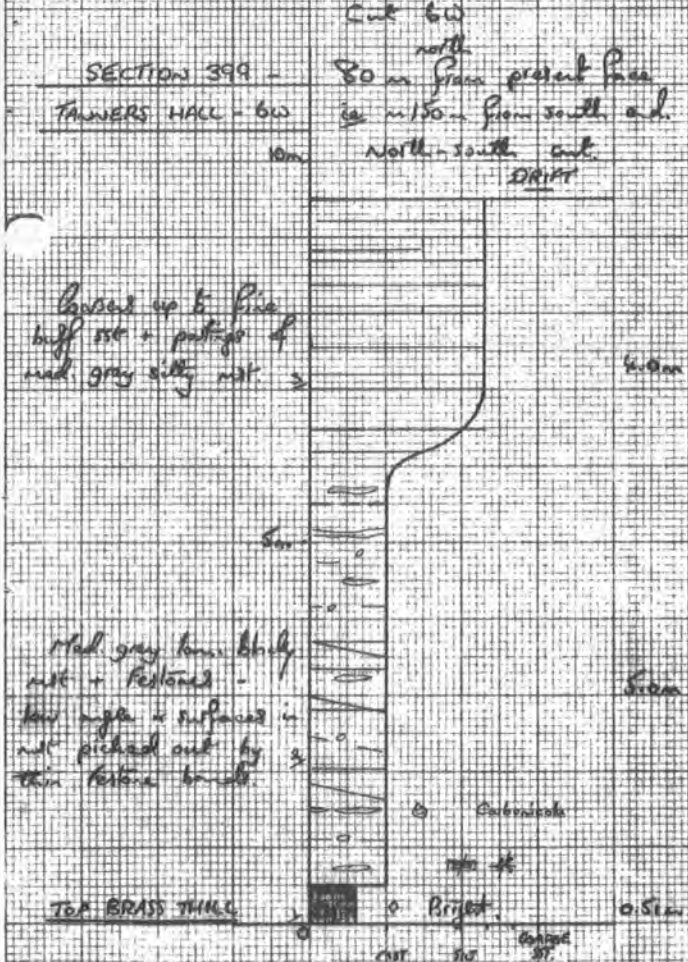 Cut 6W
SECTION 399 -
TANNERS HALL - 6W
north
80 m from present face
ie ~150m from south end.
North-south cut.
10m
DRIFT
Coarsens up to fine
buff sst + partings of
med. gray silty mst.
4.0m
5m
Med. grey lam. blocky
mst + Festones -
low angle surfaces in
mst picked out by
thin Festone bands.
5.0m
Carbonicola
TOP BRASS THILL
0
Bright.
0.51m
0
MST
SLT
COARSE
SST.